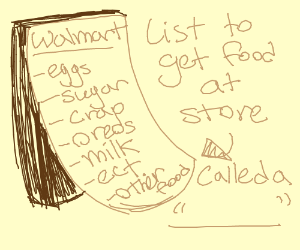 Walmart
-eggs
-sugar
-crap
-oreos
-milk
-ect
-other food
List to
get food
at
store
Called a
"________"